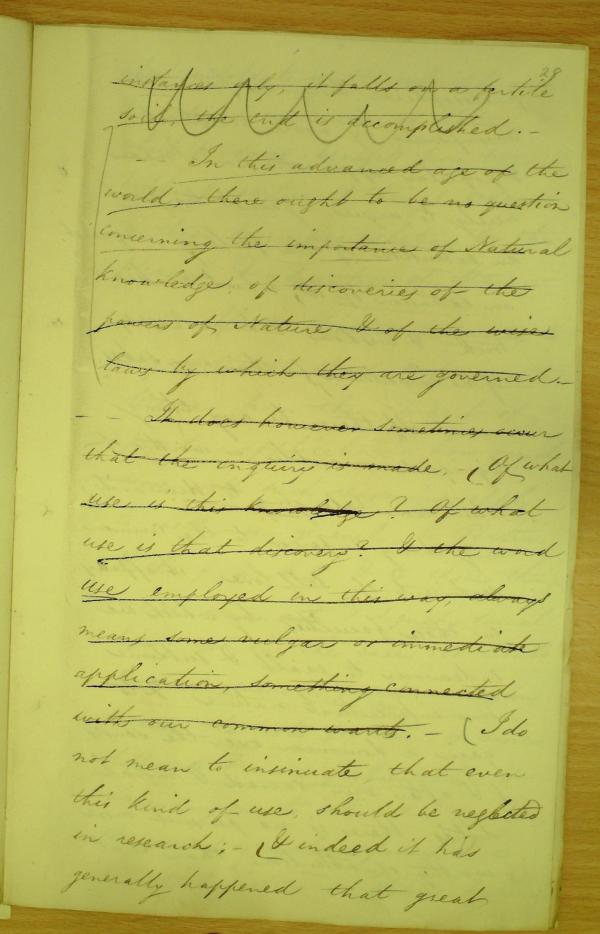 29
instances only, it falls on a fertile
soil, the end is accomplished. -
- In this advanced age of the
world, there ought to be no question
concerning the importance of Natural
knowledge, of discoveries of the
powers of Nature & of the wise
laws by which they are governed. -
- - It does however sometimes occur
that the inquiry is made. - (Of what
use is this knowledge? Of what
use is that discovery? & the word
use employed in this way, always
means some vulgar or immediate
application, something connected
with our common wants. - (I do
not mean to insinuate that even
this kind of use, should be neglected
in research; - (& indeed it has
generally happened that great